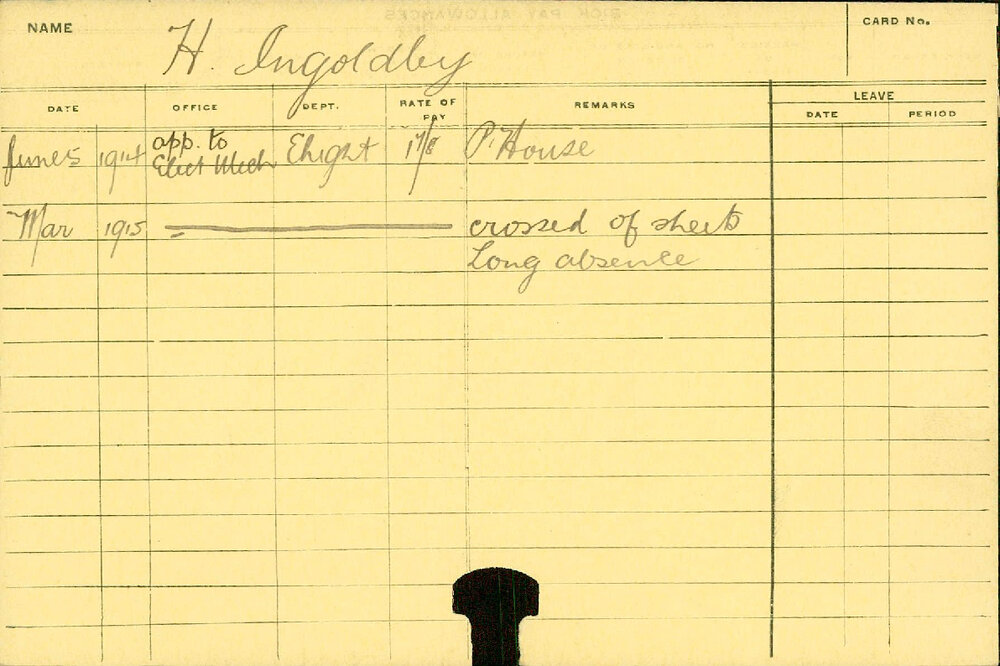 NAME H. Ingoldby CARD No.
DATE OFFICE DEPT. RATE OF PAY REMARKS LEAVE
DATE PERIOD
June 5 1914 app. to Elect Mech Elight 17/8 P. House
Mar 1915 crossed of sheets
Long absence